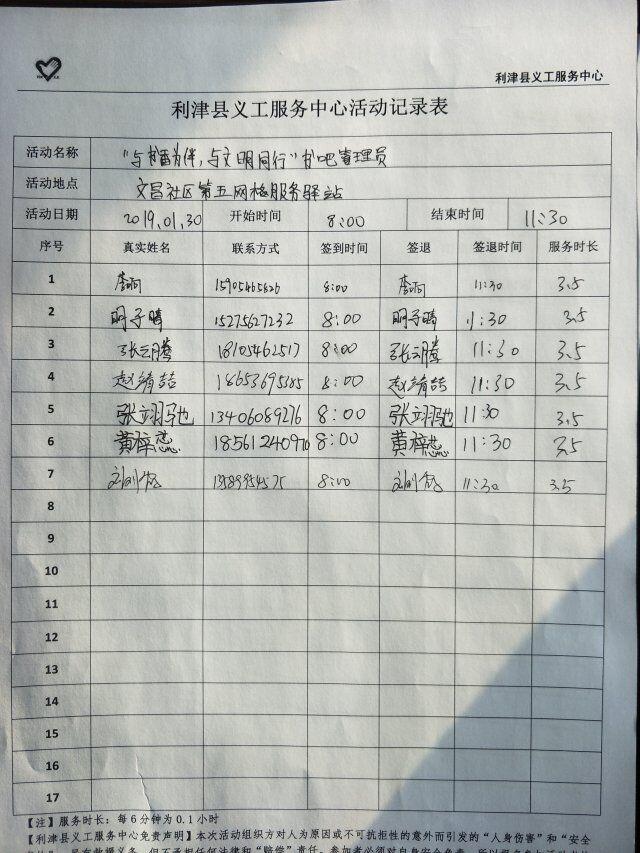 利津县义工服务中心
利津县义工服务中心活动记录表
活动名称 "与书为伴,与文明同行"书吧管理员
活动地点 文昌社区第五网格服务驿站
活动日期 2019.01.30 开始时间 8:00 结束时间 11:30
序号 真实姓名 联系方式 签到时间 签退 签退时间 服务时长
1 李雨 15905465826 8:00 李雨 11:30 3.5
2 明子晴 15275627232 8:00 明子晴 11:30 3.5
3 张云腾 18105462517 8:00 张云腾 11:30 3.5
4 赵靖喆 18653695185 8:00 赵靖喆 11:30 3.5
5 张翊驰 13406089276 8:00 张翊驰 11:30 3.5
6 黄梓蕊 18561240976 8:00 黄梓蕊 11:30 3.5
7 13589954575 8:00 11:30 3.5
8
9
10
11
12
13
14
15
16
17
【注】服务时长:每6分钟为0.1小时
【利津县义工服务中心免责声明】本次活动组织方对人为原因或不可抗拒性的意外而引发的"人身伤害"和"安全